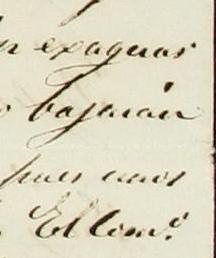 exaguas
bajarán
pues unos
El Com.º